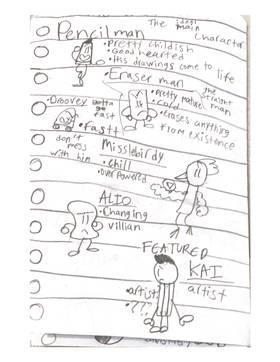 Pencilman
The idiot main character
• Pretty childish
• Good hearted
• His drawings come to life
• Eraser man
The straight man
• Pretty mature
• Cold
• Erases anything from existence
• Droovey
gotta go fast
• Fastt
don't mess with him
Misslabirdy
• chill
• overpowered
ALIO
• Changing
villian
FEATURED
KAI
artist
• artist
• ???